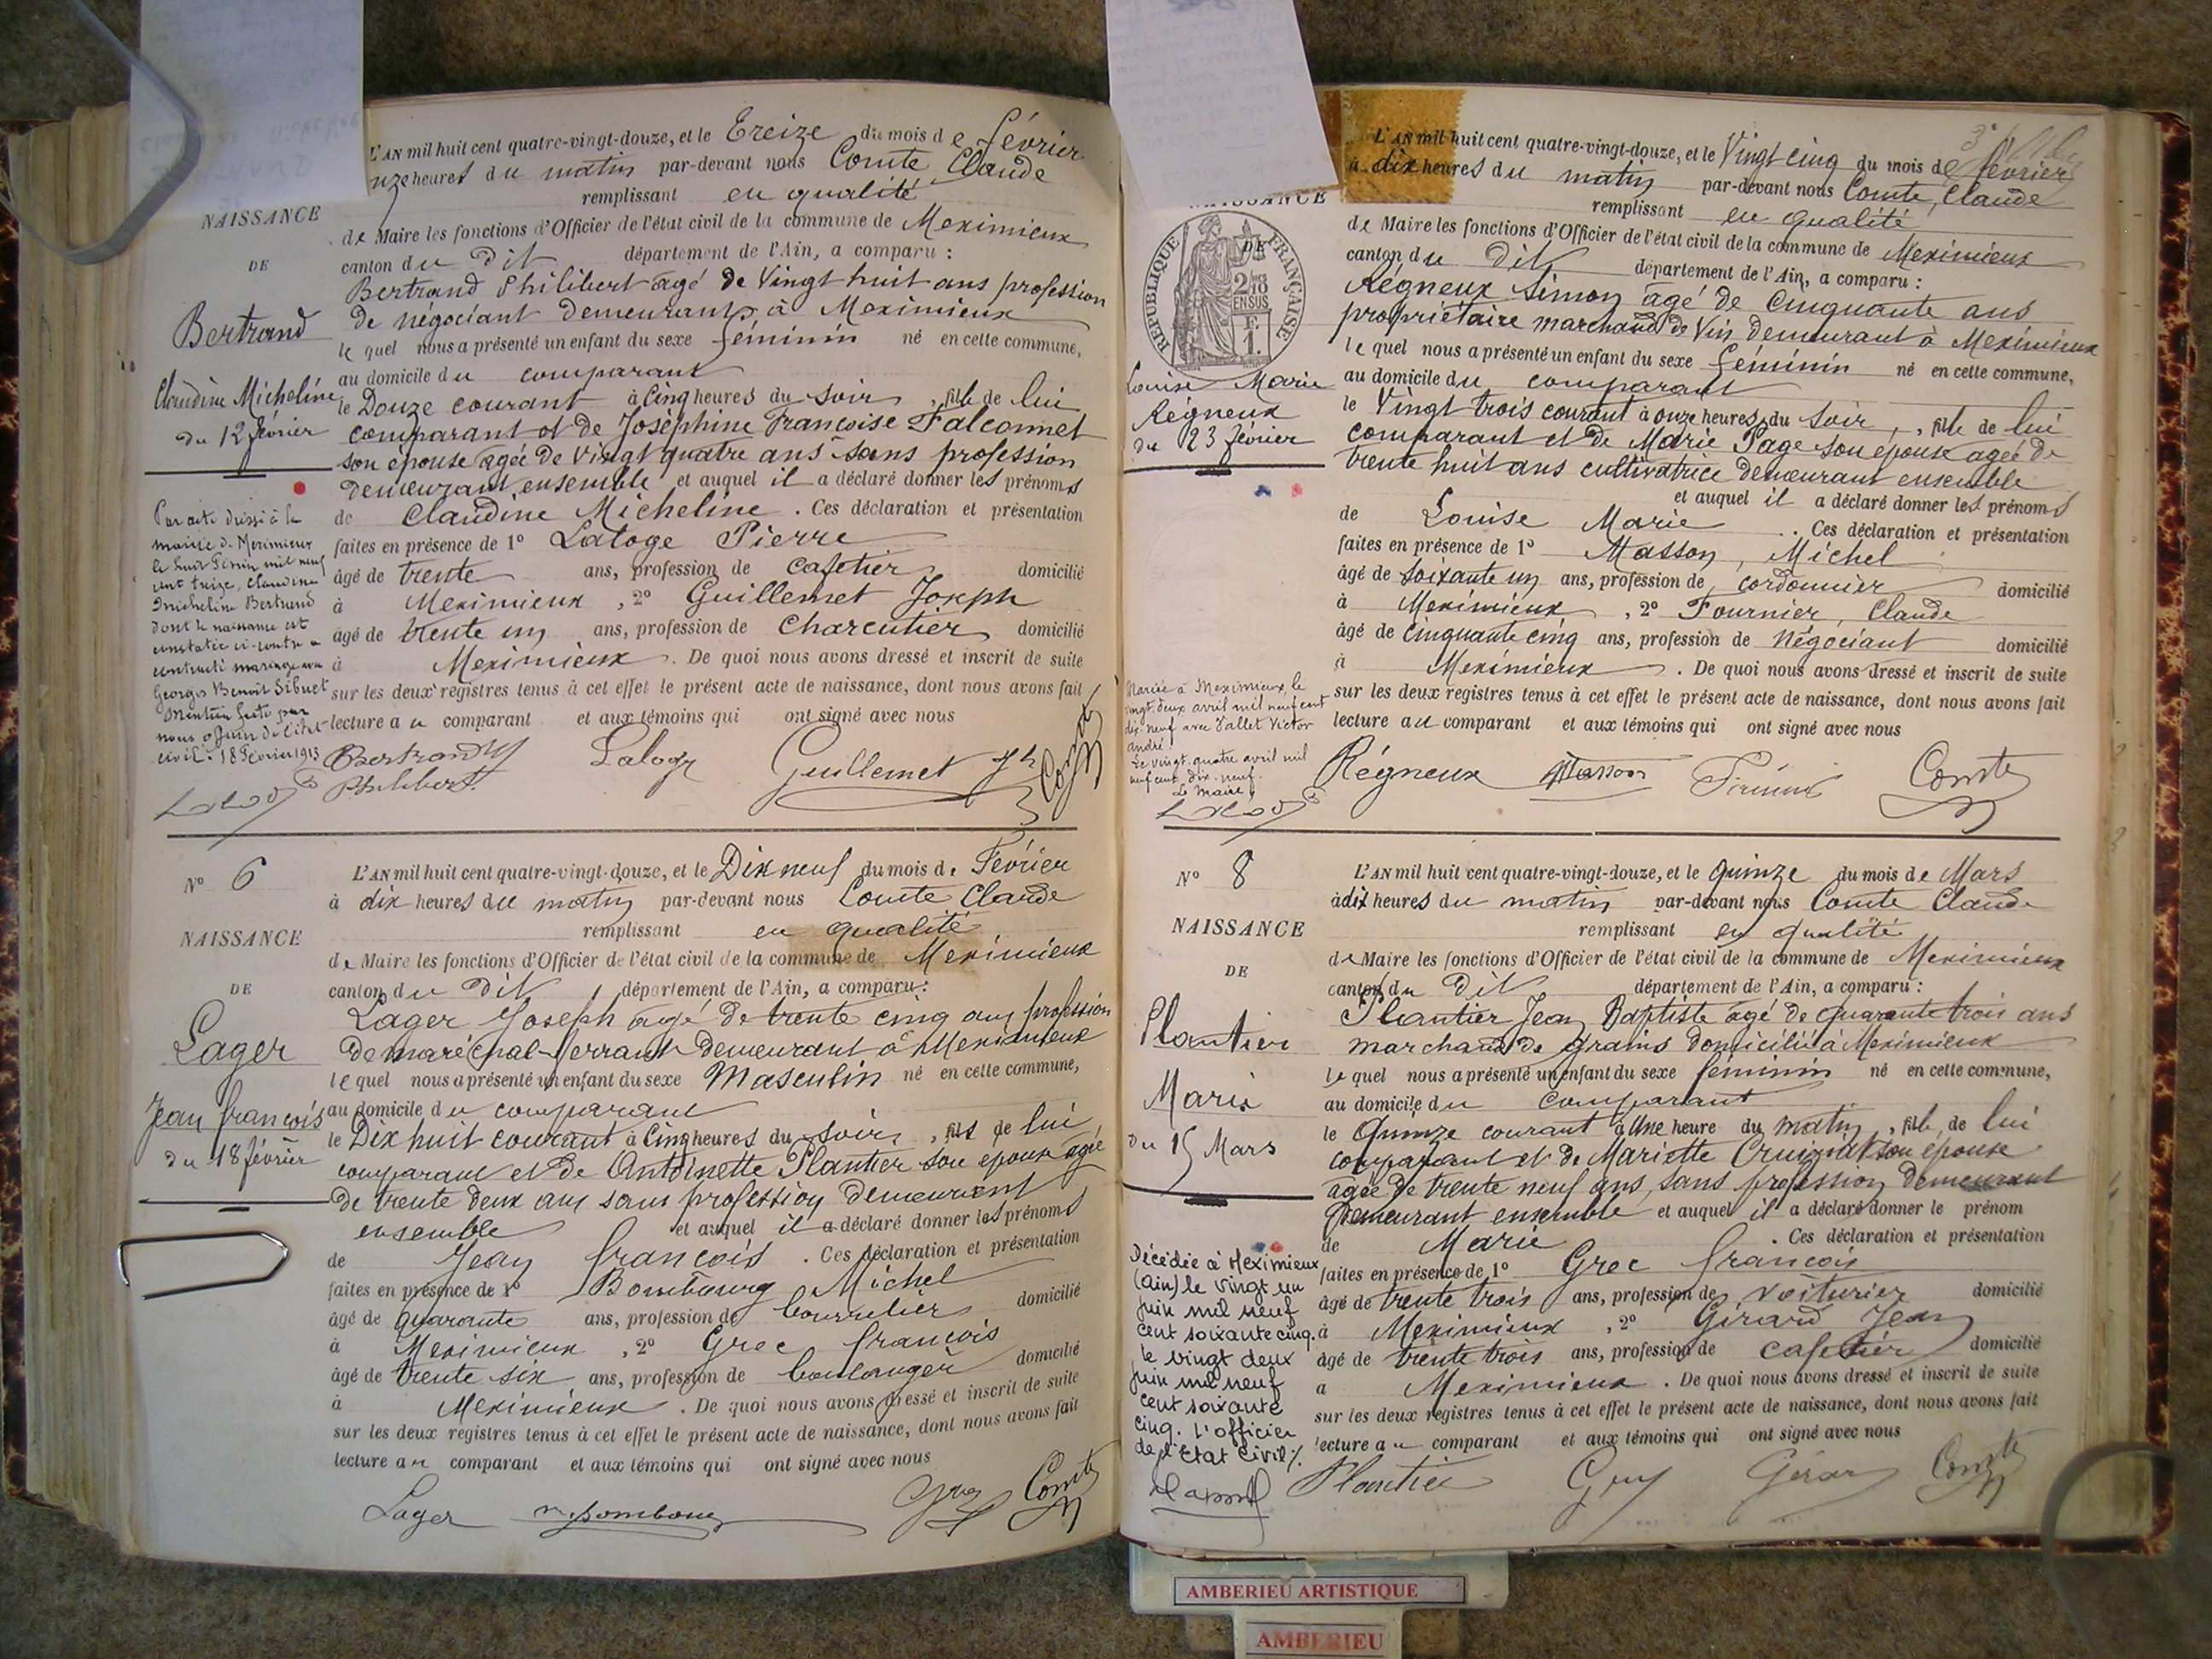 L'AN mil huit cent quatre-vingt-douze, et le Treize du mois de février
nze heures du matin par-devant nous Comte Claude
remplissant en qualité
de Maire les fonctions d'Officier de l'état civil de la commune de Meximieux
canton du Dit département de l'Ain, a comparu :
Bertrand Philibert âgé de Vingt huit ans profession
de négociant demeurant à Meximieux
le quel nous a présenté un enfant du sexe féminin né en cette commune,
au domicile du comparant
le Douze courant à Cinq heures du soir, fille de lui
comparant et de Joséphine Françoise Falconnet
son épouse âgée de vingt quatre ans sans profession
demeurant ensemble et auquel il a déclaré donner les prénoms
de Claudine Micheline. Ces déclaration et présentation
faites en présence de 1° Laloge Pierre
âgé de trente ans, profession de cafetier domicilié
à Meximieux, 2° Guillemet Joseph
âgé de trente un ans, profession de Charcutier domicilié
à Meximieux. De quoi nous avons dressé et inscrit de suite
sur les deux registres tenus à cet effet le présent acte de naissance, dont nous avons fait
lecture au comparant et aux témoins qui ont signé avec nous
Bertrand Philibert Laloge Guillemet Jh Comte
NAISSANCE
DE
Bertrand
Claudine Micheline
du 12 février
Par acte dressé à la
mairie de Meximieux
le huit Février mil neuf
cent treize, Claudine
Micheline Bertrand
dont la naissance est
constatée ci-contre a
contracté mariage avec
Georges Benoit Sibuet
Mention faite par
nous officier de l'état
civil. 18 Février 1913
N° 6
NAISSANCE
DE
Lager
Jean françois
du 18 février
L'AN mil huit cent quatre-vingt-douze, et le Dix neuf du mois de Février
à dix heures du matin par-devant nous Comte Claude
remplissant en qualité
de Maire les fonctions d'Officier de l'état civil de la commune de Meximieux
canton du Dit, département de l'Ain, a comparu :
Lager Joseph âgé de trente cinq ans profession
de maréchal-ferrant demeurant à Meximieux
le quel nous a présenté un enfant du sexe Masculin né en cette commune,
au domicile du comparant
le Dix huit courant à Cinq heures du soir, fils de lui
comparant et de Antoinette Plantier son épouse âgée
de trente deux ans sans profession demeurant
ensemble et auquel il a déclaré donner les prénoms
de Jean françois. Ces déclaration et présentation
faites en présence de 1° Bombourg Michel
âgé de quarante ans, profession de bourrelier domicilié
à Meximieux, 2° Grec françois
âgé de trente six ans, profession de boulanger domicilié
à Meximieux. De quoi nous avons dressé et inscrit de suite
sur les deux registres tenus à cet effet le présent acte de naissance, dont nous avons fait
lecture au comparant et aux témoins qui ont signé avec nous
Lager m. Bombourg Grec Comte
L'AN mil huit cent quatre-vingt-douze, et le Vingt cinq du mois de février
à dix heures du matin par-devant nous Comte, Claude
remplissant en qualité
de Maire les fonctions d'Officier de l'état civil de la commune de Meximieux
canton du Dit département de l'Ain, a comparu :
Régneux Simon âgé de Cinquante ans
propriétaire marchand de Vin demeurant à Meximieux
le quel nous a présenté un enfant du sexe féminin né en cette commune,
au domicile du comparant
le Vingt trois courant à onze heures du soir, fille de lui
comparant et de Marie Page son épouse âgée de
trente huit ans cultivatrice demeurant ensemble
et auquel il a déclaré donner les prénoms
de Louise Marie. Ces déclaration et présentation
faites en présence de 1° Masson, Michel
âgé de soixante un ans, profession de cordonnier domicilié
à Meximieux, 2° Fournier, Claude
âgé de Cinquante cinq ans, profession de Négociant domicilié
à Meximieux. De quoi nous avons dressé et inscrit de suite
sur les deux registres tenus à cet effet le présent acte de naissance, dont nous avons fait
lecture au comparant et aux témoins qui ont signé avec nous
Régneux Masson Comte
NAISSANCE
DE
RÉPUBLIQUE FRANÇAISE
Louise Marie
Régneux
du 23 février
Mariée à Meximieux, le
vingt-deux avril mil neuf cent
dix-neuf avec Vallet Victor
André.
Le vingt-quatre avril mil
neuf cent dix-neuf.
Le Maire,
N° 8
NAISSANCE
DE
Plantier
Marie
du 15 Mars
L'AN mil huit cent quatre-vingt-douze, et le quinze du mois de Mars
à dix heures du matin par-devant nous Comte Claude
remplissant en qualité
de Maire les fonctions d'Officier de l'état civil de la commune de Meximieux
canton du Dit département de l'Ain, a comparu :
Plantier Jean Baptiste âgé de quarante trois ans
marchand de grains domicilié à Meximieux
le quel nous a présenté un enfant du sexe féminin né en cette commune,
au domicile du comparant
le Quinze courant à Une heure du matin, fille de lui
comparant et de Mariette Cruiziat son épouse
âgée de trente neuf ans, sans profession demeurant
demeurant ensemble et auquel il a déclaré donner le prénom
de Marie. Ces déclaration et présentation
faites en présence de 1° Grec françois
âgé de trente trois ans, profession de voiturier domicilié
à Meximieux, 2° Girard Jean
âgé de trente trois ans, profession de cafetier domicilié
à Meximieux. De quoi nous avons dressé et inscrit de suite
sur les deux registres tenus à cet effet le présent acte de naissance, dont nous avons fait
lecture au comparant et aux témoins qui ont signé avec nous
Plantier Girard Comte
Décédée à Meximieux
(Ain) le vingt un
juin mil neuf
cent soixante cinq.
le vingt deux
juin mil neuf
cent soixante
cinq. L'officier
de l'Etat Civil %.
AMBERIEU ARTISTIQUE
AMBERIEU